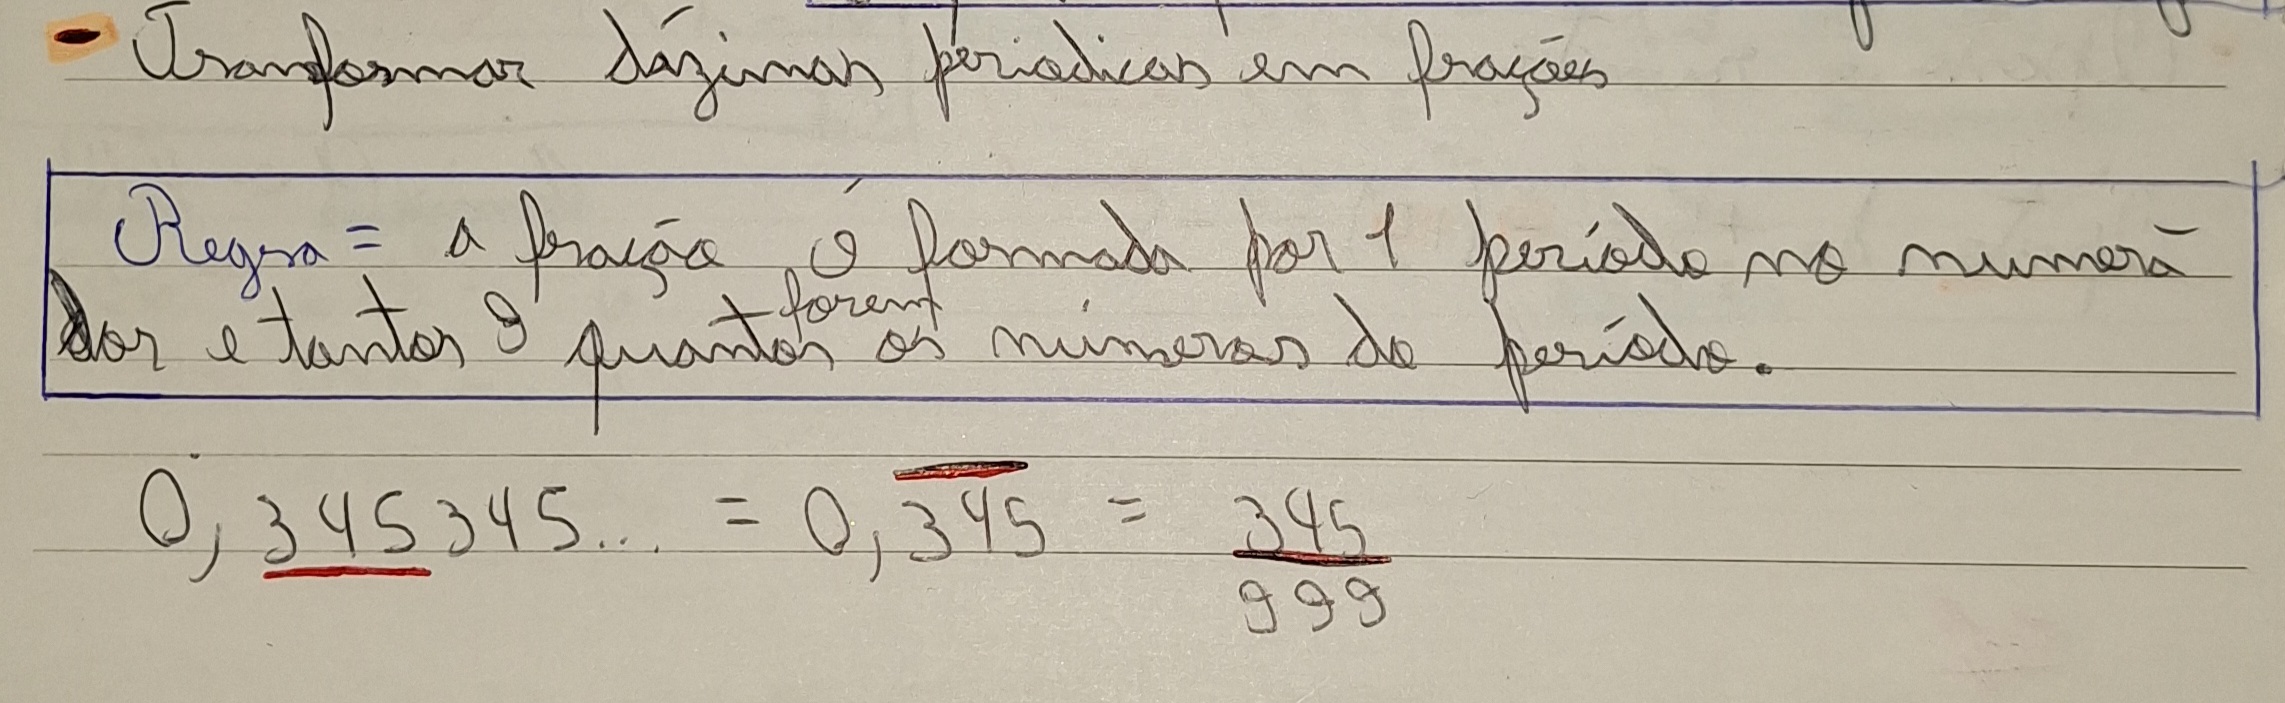 - Transformar dízimas périodicas em frações
Regra = a fração é formada por 1 período no numera-
dor e tantos 9 quantos forem os números do período.
0,345345... = 0,3̅4̅5̅ = 345/999